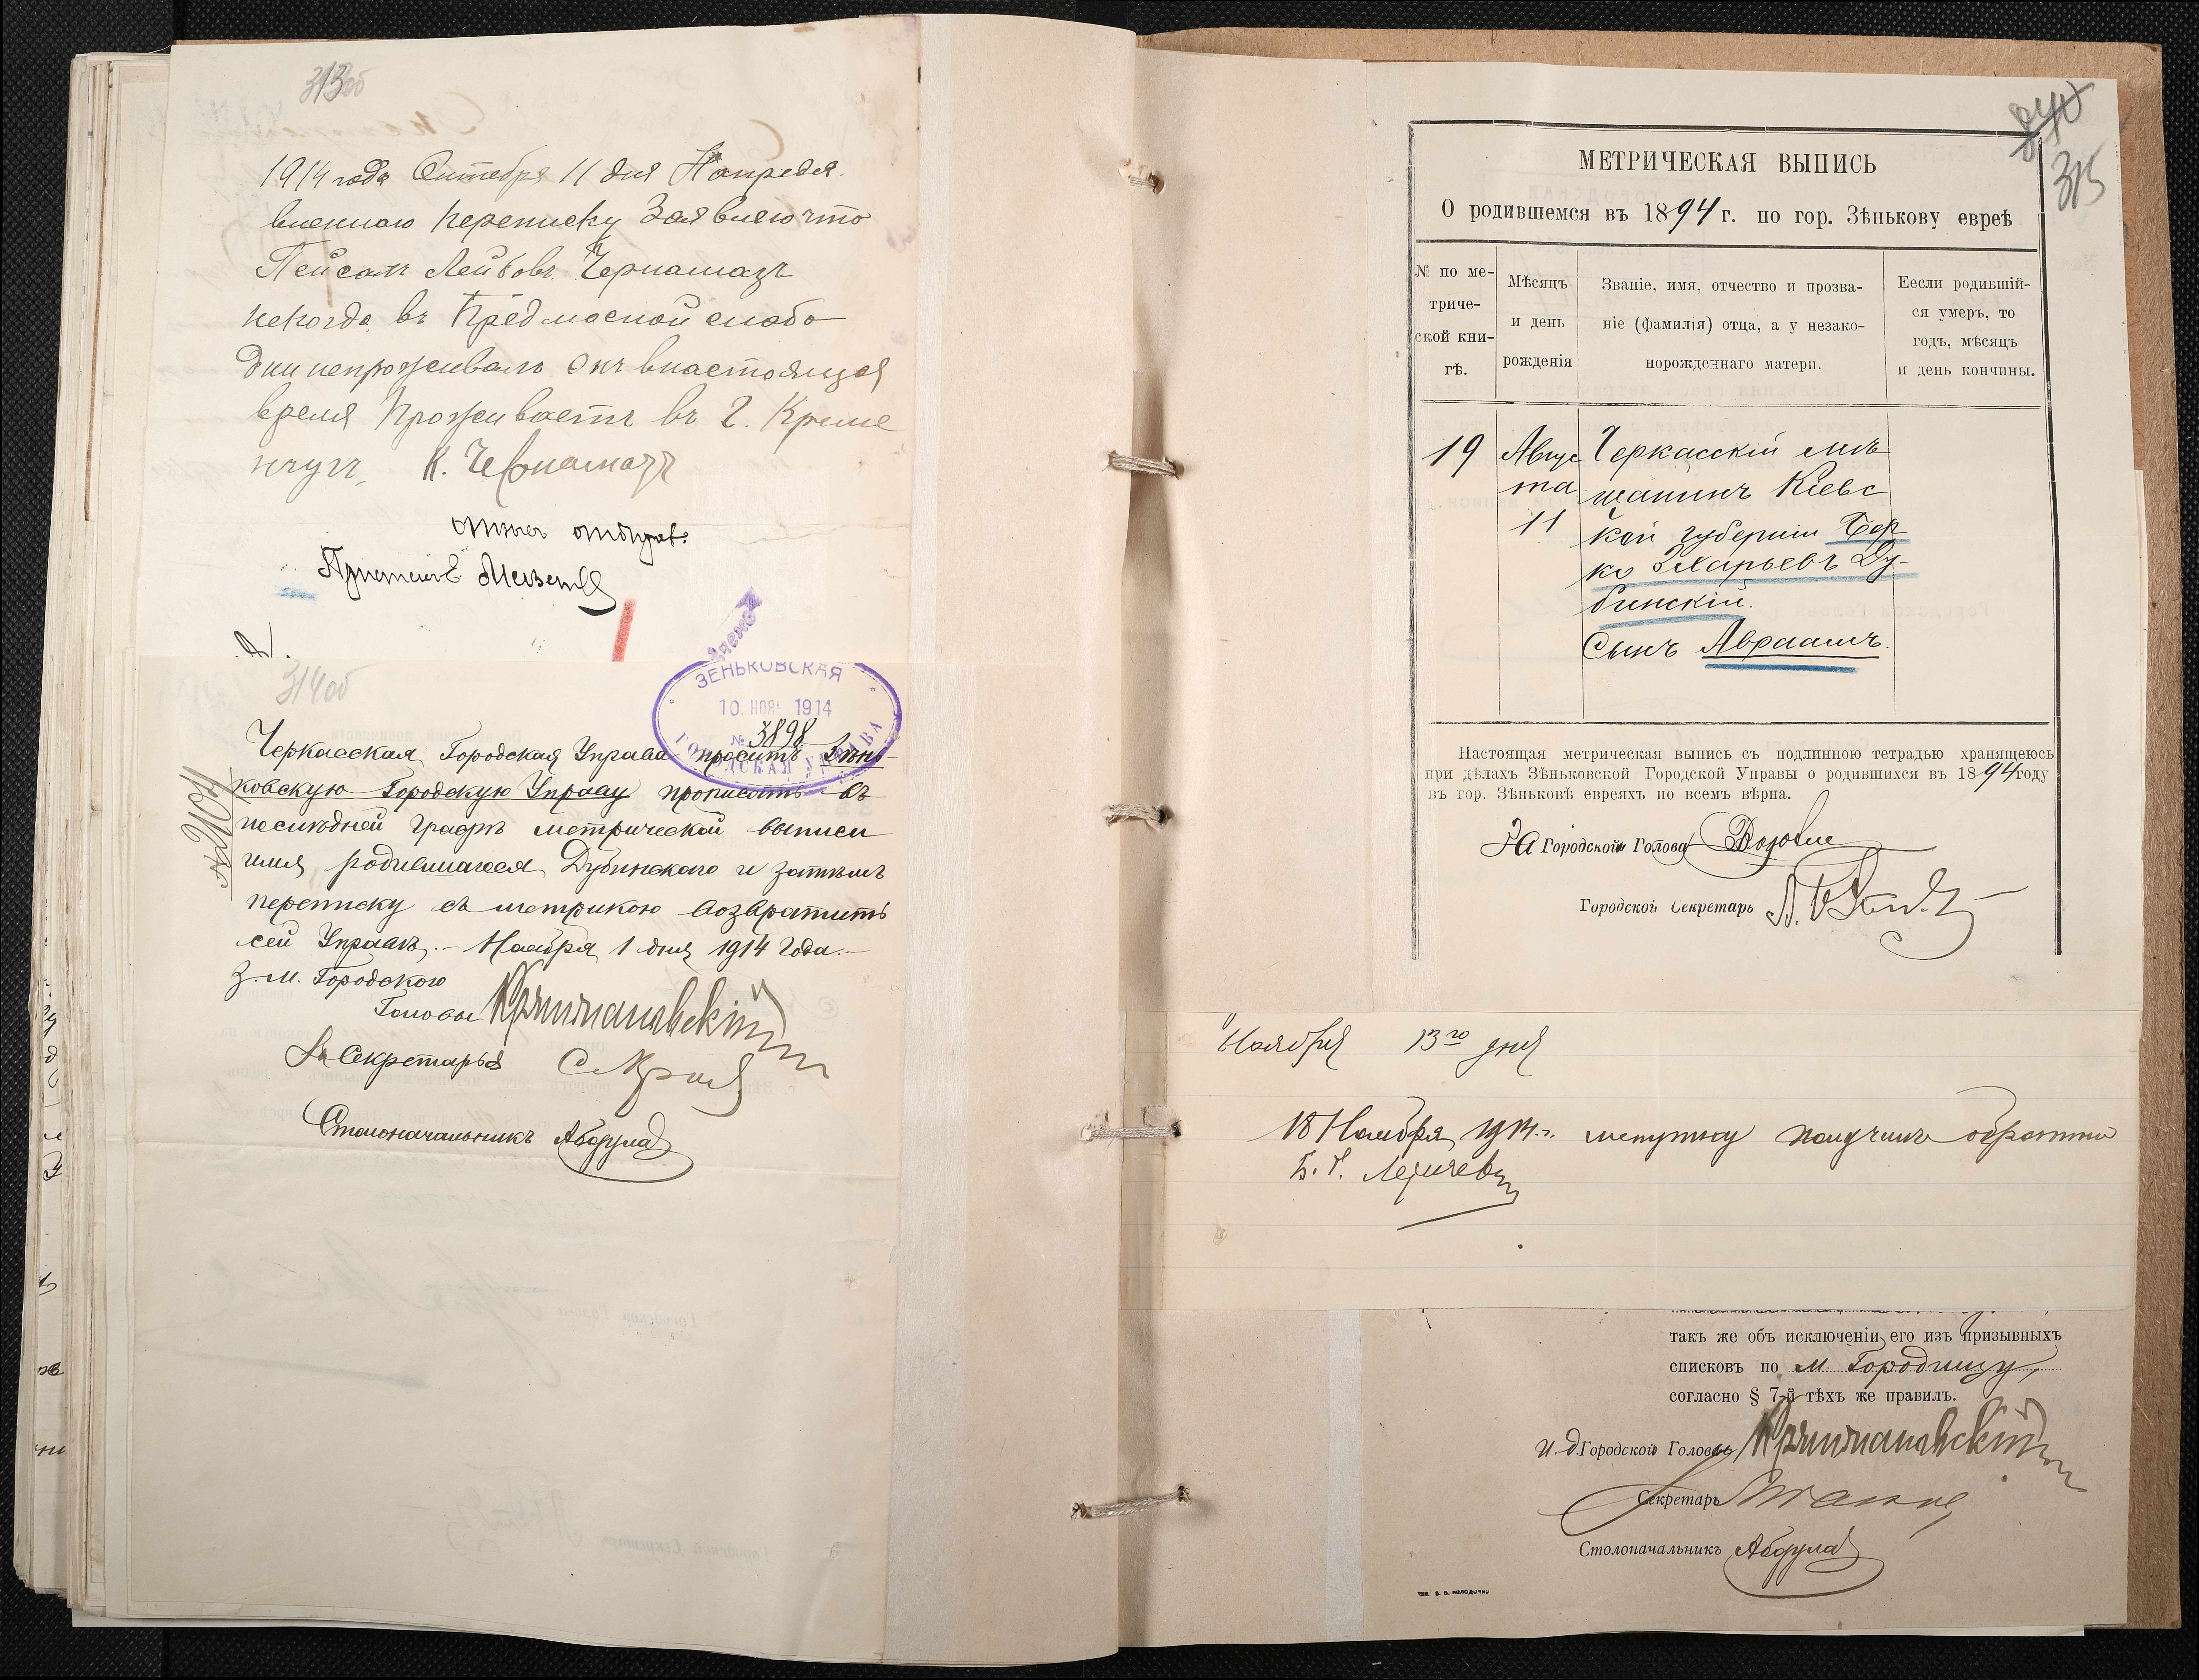 313об
1914 года Октября 11 дня Напредя
вленную переписку Заявляю что
Пейсахъ Лейбовъ Черномазъ
некогда въ Предмосной слабо
дки непроживалъ Онъ внастоящая
время Проживаетъ въ г. Креме
нчугъ, К. Черномазъ
314об
ЗЕНЬКОВСКАЯ
10. НОЯ. 1914
№ 3898
ГОРОДСКАЯ УПРАВА
Черкасская Городская Управа проситъ Зѣнь-
ковскую Городскую Управу прописать въ
послѣдней графѣ метрической выписи
имя родившагося Дубинскаго и затѣмъ
переписку съ метрикою возвратить
сей Управѣ.- Ноября 1 дня 1914 года.-
З.М. Городского
Головы
За Секретаря
Столоначальникъ
340
315
МЕТРИЧЕСКАЯ ВЫПИСЬ
О родившемся въ 1894 г. по гор. Зѣнькову евреѣ
№ по ме-
триче-
ской кни-
гѣ.
Мѣсяцъ
и день
рожденія
Званіе, имя, отчество и прозва-
ніе (фамилія) отца, а у незако-
норожденнаго матери.
Еесли родившій-
ся умеръ, то
годъ, мѣсяцъ
и день кончины.
19
Авгус
та
11
Черкасскій мѣ
щанинъ Кіевс
кой губерніи Бер
ко Эхарьевъ Ду-
бинскій.
Сынъ Авраамъ.
Настоящая метрическая выпись съ подлинною тетрадью хранящеюсь
при дѣлахъ Зѣньковской Городской Управы о родившихся въ 1894 году
въ гор. Зѣньковѣ евреяхъ по всемъ вѣрна.
За Городской Голова
Городской Секретарь
Ноября 13го дня
18 Ноября 1914 г. получилъ обратно
такъ же объ исключеніи его изъ призывныхъ
списковъ по м Городищу,
согласно § 7-й тѣхъ же правилъ.
И.д. Городской Головы
Секретарь
Столоначальникъ